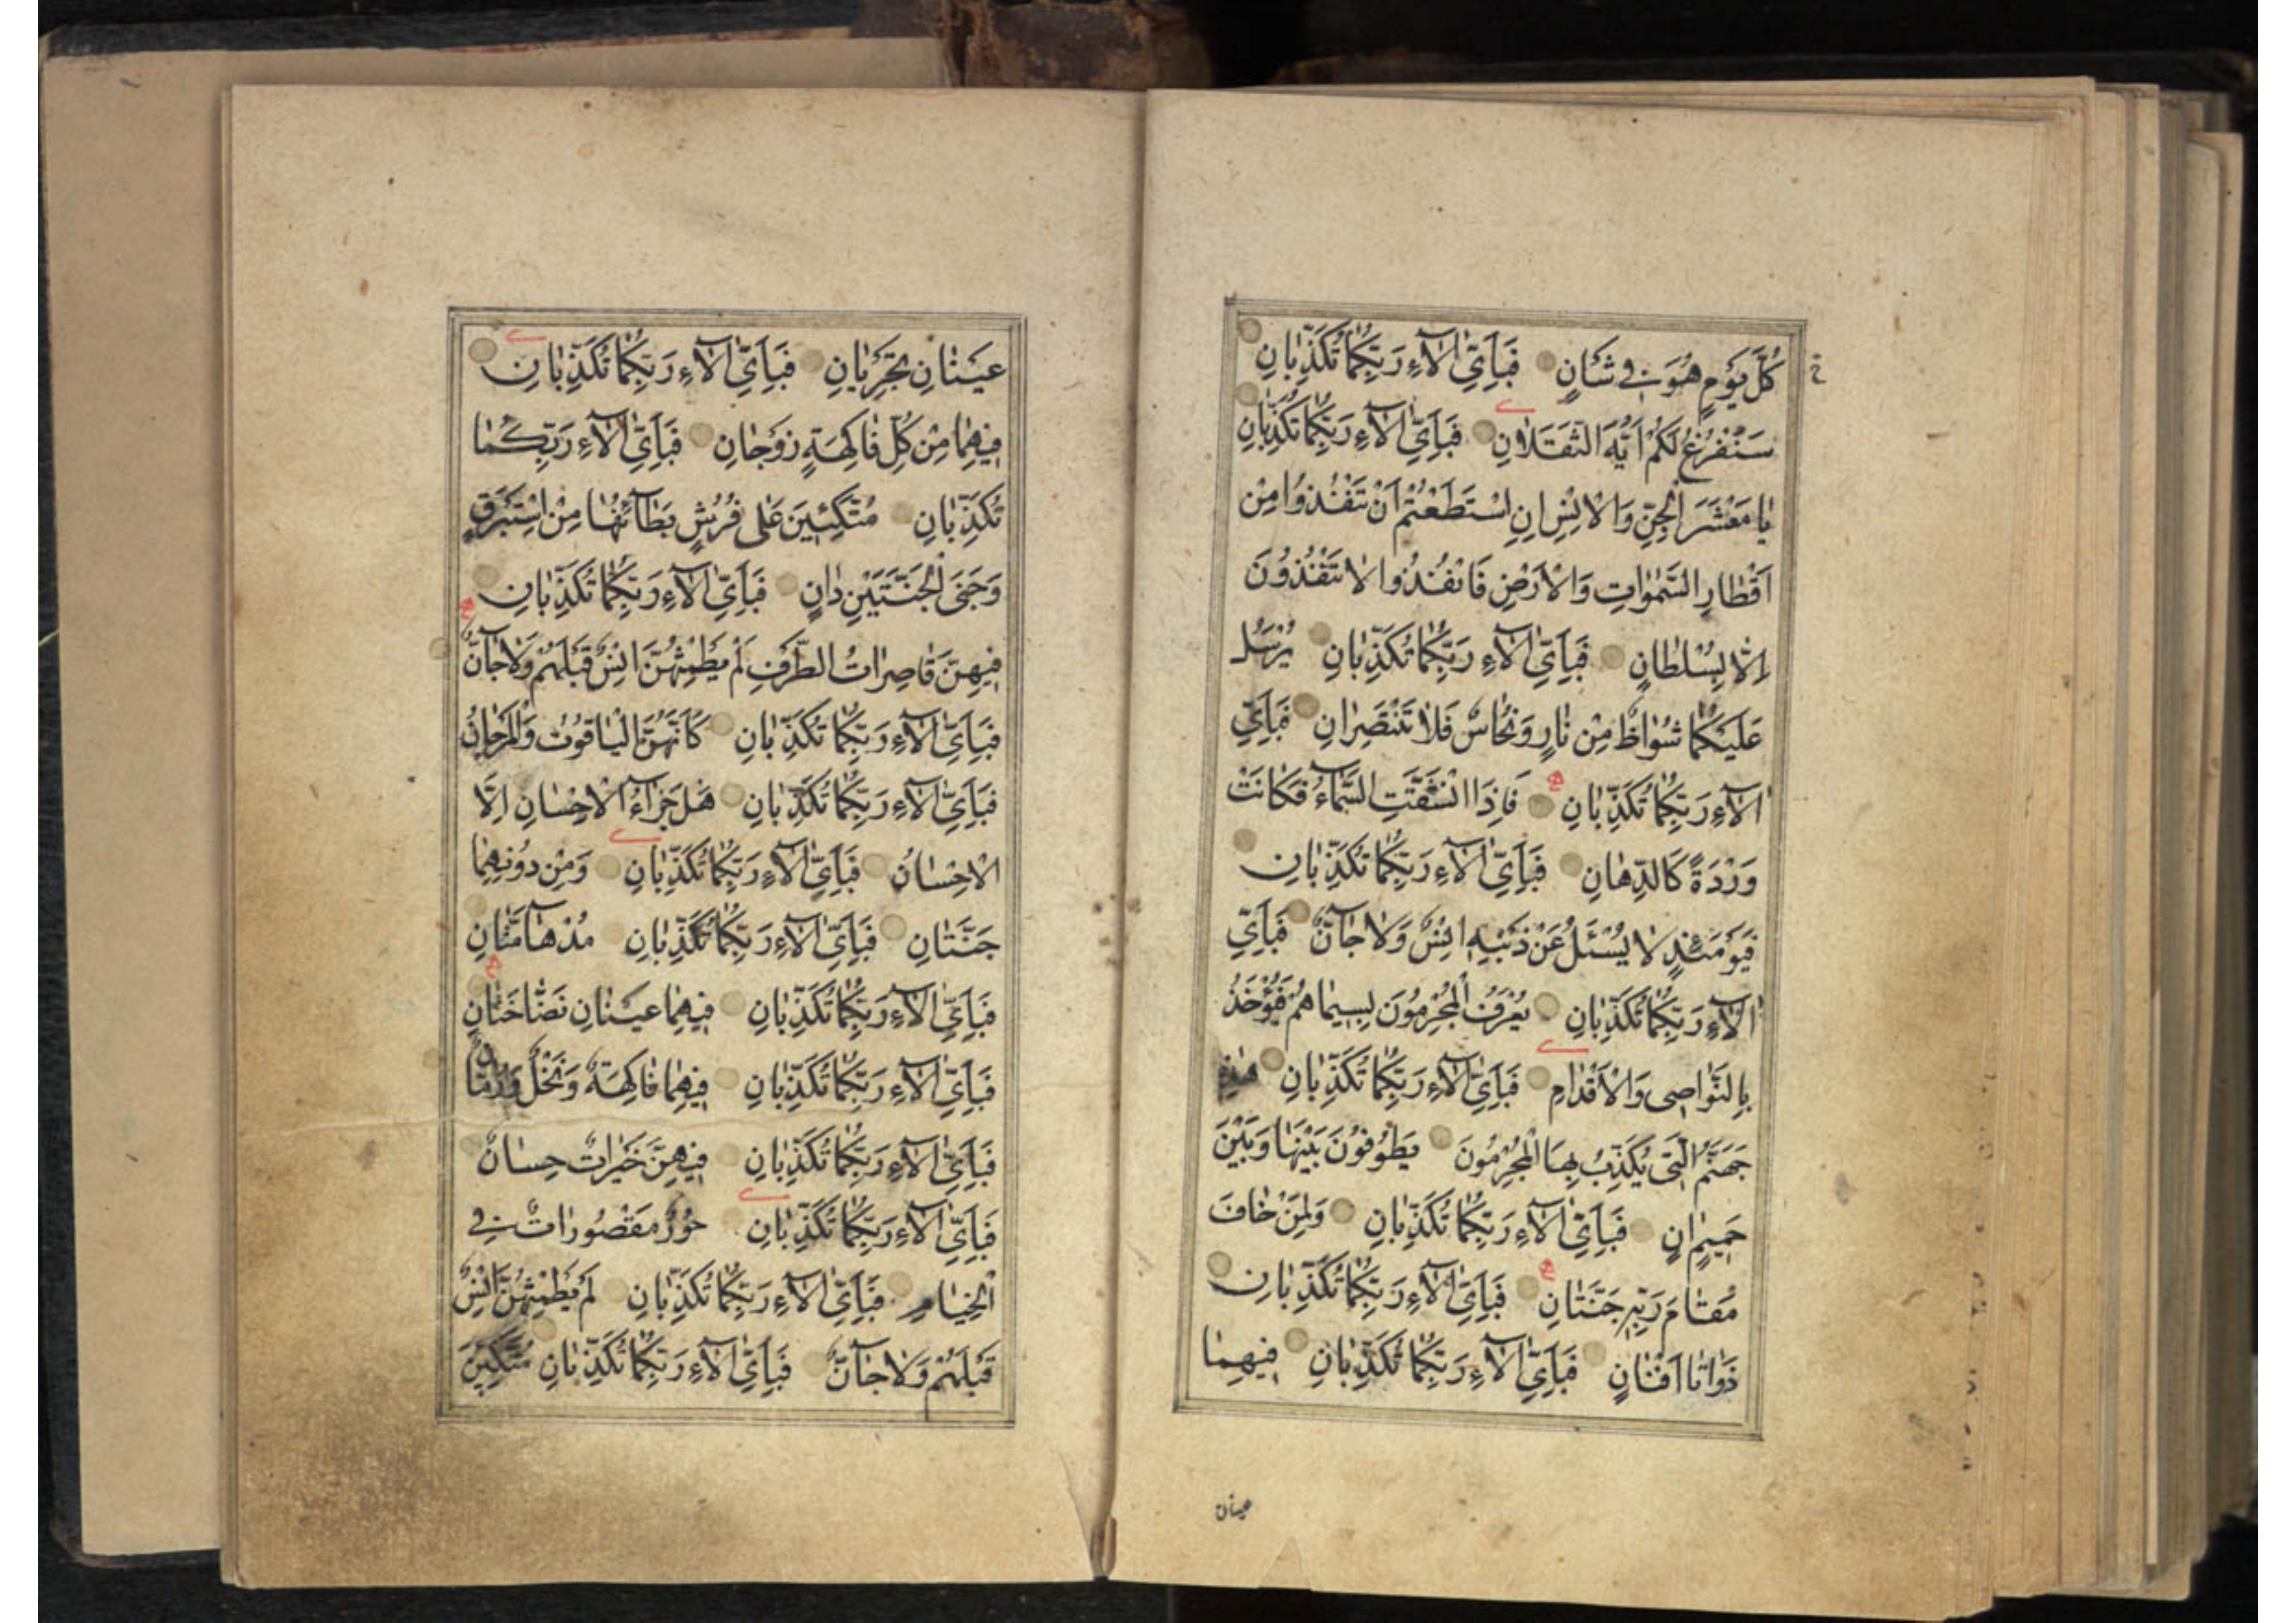 كُلَّ يَوْمٍ هُوَ فِي شَأْنٍ فَبِأَيِّ آلَاءِ رَبِّكُمَا تُكَذِّبَانِ
سَنَفْرُغُ لَكُمْ أَيُّهَ الثَّقَلَانِ فَبِأَيِّ آلَاءِ رَبِّكُمَا تُكَذِّبَانِ
يَا مَعْشَرَ الْجِنِّ وَالْإِنْسِ إِنِ اسْتَطَعْتُمْ أَنْ تَنْفُذُوا مِنْ
أَقْطَارِ السَّمٰوَاتِ وَالْأَرْضِ فَانْفُذُوا لَا تَنْفُذُونَ
إِلَّا بِسُلْطَانٍ فَبِأَيِّ آلَاءِ رَبِّكُمَا تُكَذِّبَانِ يُرْسَلُ
عَلَيْكُمَا شُوَاظٌ مِنْ نَارٍ وَنُحَاسٌ فَلَا تَنْتَصِرَانِ فَبِأَيِّ
آلَاءِ رَبِّكُمَا تُكَذِّبَانِ فَإِذَا انْشَقَّتِ السَّمَاءُ فَكَانَتْ
وَرْدَةً كَالدِّهَانِ فَبِأَيِّ آلَاءِ رَبِّكُمَا تُكَذِّبَانِ
فَيَوْمَئِذٍ لَا يُسْئَلُ عَنْ ذَنْبِهِ إِنْسٌ وَلَا جَآنٌّ فَبِأَيِّ
آلَاءِ رَبِّكُمَا تُكَذِّبَانِ يُعْرَفُ الْمُجْرِمُونَ بِسِيمَاهُمْ فَيُؤْخَذُ
بِالنَّوَاصِي وَالْأَقْدَامِ فَبِأَيِّ آلَاءِ رَبِّكُمَا تُكَذِّبَانِ هٰذِهِ
جَهَنَّمُ الَّتِي يُكَذِّبُ بِهَا الْمُجْرِمُونَ يَطُوفُونَ بَيْنَهَا وَبَيْنَ
حَمِيمٍ آنٍ فَبِأَيِّ آلَاءِ رَبِّكُمَا تُكَذِّبَانِ وَلِمَنْ خَافَ
مَقَامَ رَبِّهِ جَنَّتَانِ فَبِأَيِّ آلَاءِ رَبِّكُمَا تُكَذِّبَانِ
ذَوَاتَا أَفْنَانٍ فَبِأَيِّ آلَاءِ رَبِّكُمَا تُكَذِّبَانِ فِيهِمَا
عينان
عَيْنَانِ تَجْرِيَانِ فَبِأَيِّ آلَاءِ رَبِّكُمَا تُكَذِّبَانِ
فِيهِمَا مِنْ كُلِّ فَاكِهَةٍ زَوْجَانِ فَبِأَيِّ آلَاءِ رَبِّكُمَا
تُكَذِّبَانِ مُتَّكِئِينَ عَلَى فُرُشٍ بَطَآئِنُهَا مِنْ إِسْتَبْرَقٍ
وَجَنَى الْجَنَّتَيْنِ دَانٍ فَبِأَيِّ آلَاءِ رَبِّكُمَا تُكَذِّبَانِ
فِيهِنَّ قَاصِرَاتُ الطَّرْفِ لَمْ يَطْمِثْهُنَّ إِنْسٌ قَبْلَهُمْ وَلَا جَآنٌّ
فَبِأَيِّ آلَاءِ رَبِّكُمَا تُكَذِّبَانِ كَأَنَّهُنَّ الْيَاقُوتُ وَالْمَرْجَانُ
فَبِأَيِّ آلَاءِ رَبِّكُمَا تُكَذِّبَانِ هَلْ جَزَآءُ الْإِحْسَانِ إِلَّا
الْإِحْسَانُ فَبِأَيِّ آلَاءِ رَبِّكُمَا تُكَذِّبَانِ وَمِنْ دُونِهِمَا
جَنَّتَانِ فَبِأَيِّ آلَاءِ رَبِّكُمَا تُكَذِّبَانِ مُدْهَآمَّتَانِ
فَبِأَيِّ آلَاءِ رَبِّكُمَا تُكَذِّبَانِ فِيهِمَا عَيْنَانِ نَضَّاخَتَانِ
فَبِأَيِّ آلَاءِ رَبِّكُمَا تُكَذِّبَانِ فِيهِمَا فَاكِهَةٌ وَنَخْلٌ وَرُمَّانٌ
فَبِأَيِّ آلَاءِ رَبِّكُمَا تُكَذِّبَانِ فِيهِنَّ خَيْرَاتٌ حِسَانٌ
فَبِأَيِّ آلَاءِ رَبِّكُمَا تُكَذِّبَانِ حُورٌ مَقْصُورَاتٌ فِي
الْخِيَامِ فَبِأَيِّ آلَاءِ رَبِّكُمَا تُكَذِّبَانِ لَمْ يَطْمِثْهُنَّ إِنْسٌ
قَبْلَهُمْ وَلَا جَآنٌّ فَبِأَيِّ آلَاءِ رَبِّكُمَا تُكَذِّبَانِ مُتَّكِئِينَ